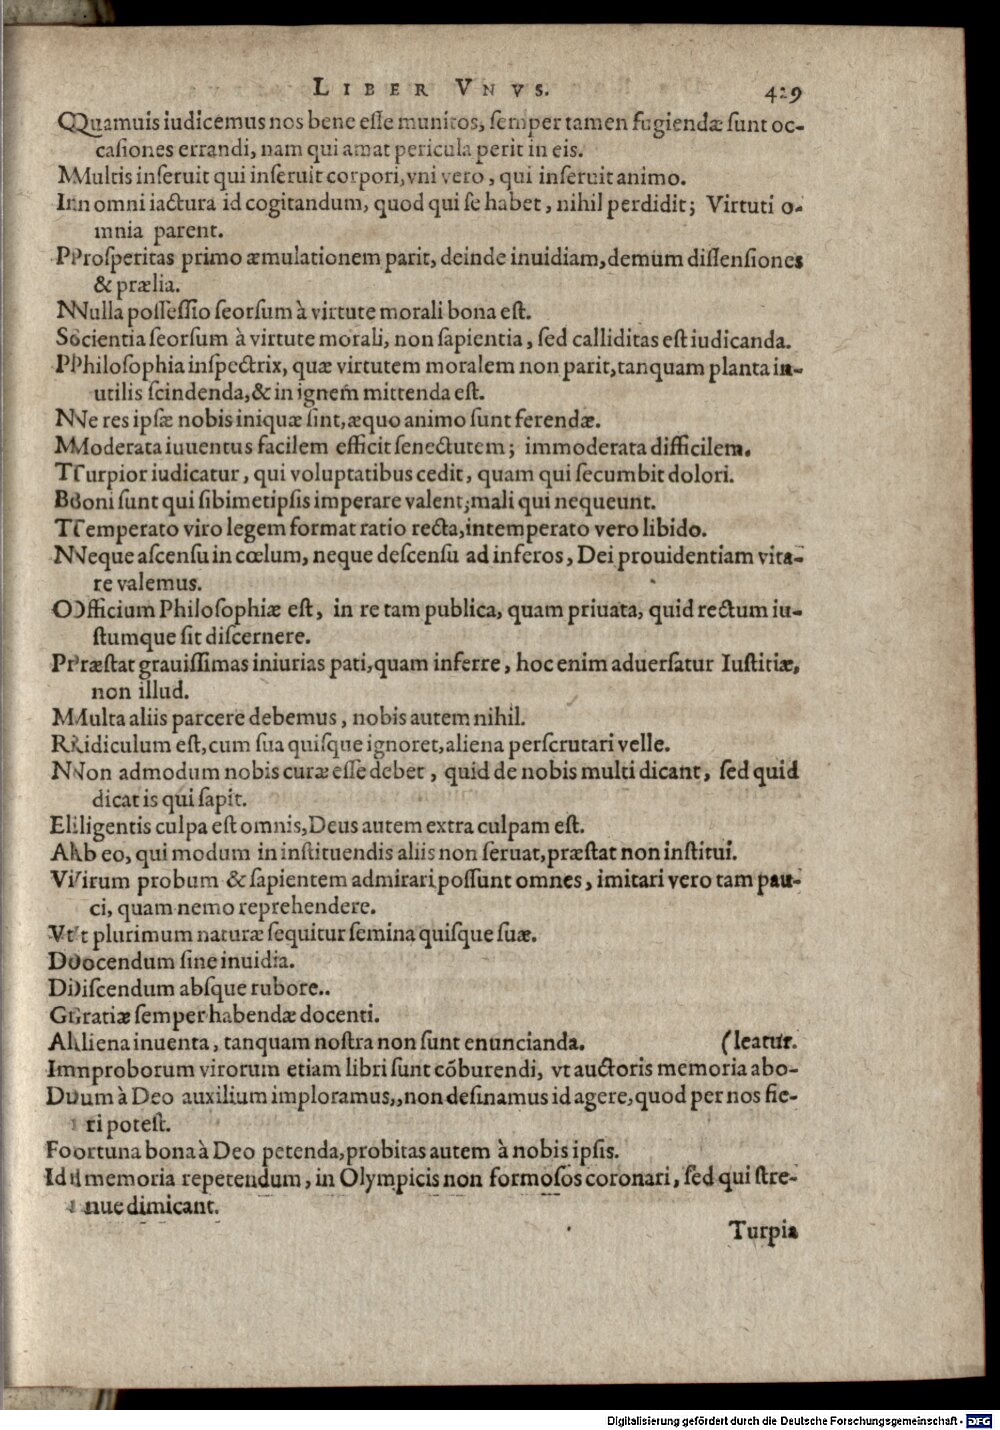 LIBER VNVS. 429
Quamuis iudicemus nos bene eſſe munitos, ſemper tamen fugiendæ ſunt oc-
caſiones errandi, nam qui amat pericula perit in eis.
Multis inſeruit qui inſeruit corpori, vni vero, qui inſeruit animo.
In omni iactura id cogitandum, quod qui ſe habet, nihil perdidit; Virtuti o-
mnia parent.
Proſperitas primo æmulationem parit, deinde inuidiam, demum diſſenſiones
& prælia.
Nulla poſſeſſio ſeorſum à virtute morali bona eſt.
Scientia ſeorſum à virtute morali, non ſapientia, ſed calliditas eſt iudicanda.
Philoſophia inſpectrix, quæ virtutem moralem non parit, tanquam planta in-
utilis ſcindenda, & in ignem mittenda eſt.
Ne res ipſæ nobis iniquæ ſint, æquo animo ſunt ferendæ.
Moderata iuuentus facilem efficit ſenectutem; immoderata difficilem.
Turpior iudicatur, qui voluptatibus cedit, quam qui ſecumbit dolori.
Boni ſunt qui ſibimetipſis imperare valent; mali qui nequeunt.
Temperato viro legem format ratio recta, intemperato vero libido.
Neque aſcenſu in cœlum, neque deſcenſu ad inferos, Dei prouidentiam vita-
re valemus.
Officium Philoſophiæ eſt, in re tam publica, quam priuata, quid rectum iu-
ſtumque ſit diſcernere.
Præſtat grauiſſimas iniurias pati, quam inferre, hoc enim aduerſatur Iuſtitiæ,
non illud.
Multa aliis parcere debemus, nobis autem nihil.
Ridiculum eſt, cum ſua quiſque ignoret, aliena perſcrutari velle.
Non admodum nobis curæ eſſe debet, quid de nobis multi dicant, ſed quid
dicat is qui ſapit.
Eligentis culpa eſt omnis, Deus autem extra culpam eſt.
Ab eo, qui modum in inſtituendis aliis non ſeruat, præſtat non inſtitui.
Virum probum & ſapientem admirari poſſunt omnes, imitari vero tam pau-
ci, quam nemo reprehendere.
Vt plurimum naturæ ſequitur ſemina quiſque ſuæ.
Docendum ſine inuidia.
Diſcendum abſque rubore.
Gratiæ ſemper habendæ docenti.
Aliena inuenta, tanquam noſtra non ſunt enuncianda. (leatur.
Improborum virorum etiam libri ſunt cōburendi, vt auctoris memoria abo-
Dum à Deo auxilium imploramus, non deſinamus id agere, quod per nos fie-
ri poteſt.
Fortuna bona à Deo petenda, probitas autem à nobis ipſis.
Id memoria repetendum, in Olympicis non formoſos coronari, ſed qui ſtre-
nue dimicant.
Turpia
Digitalisierung gefördert durch die Deutsche Forschungsgemeinschaft - DFG